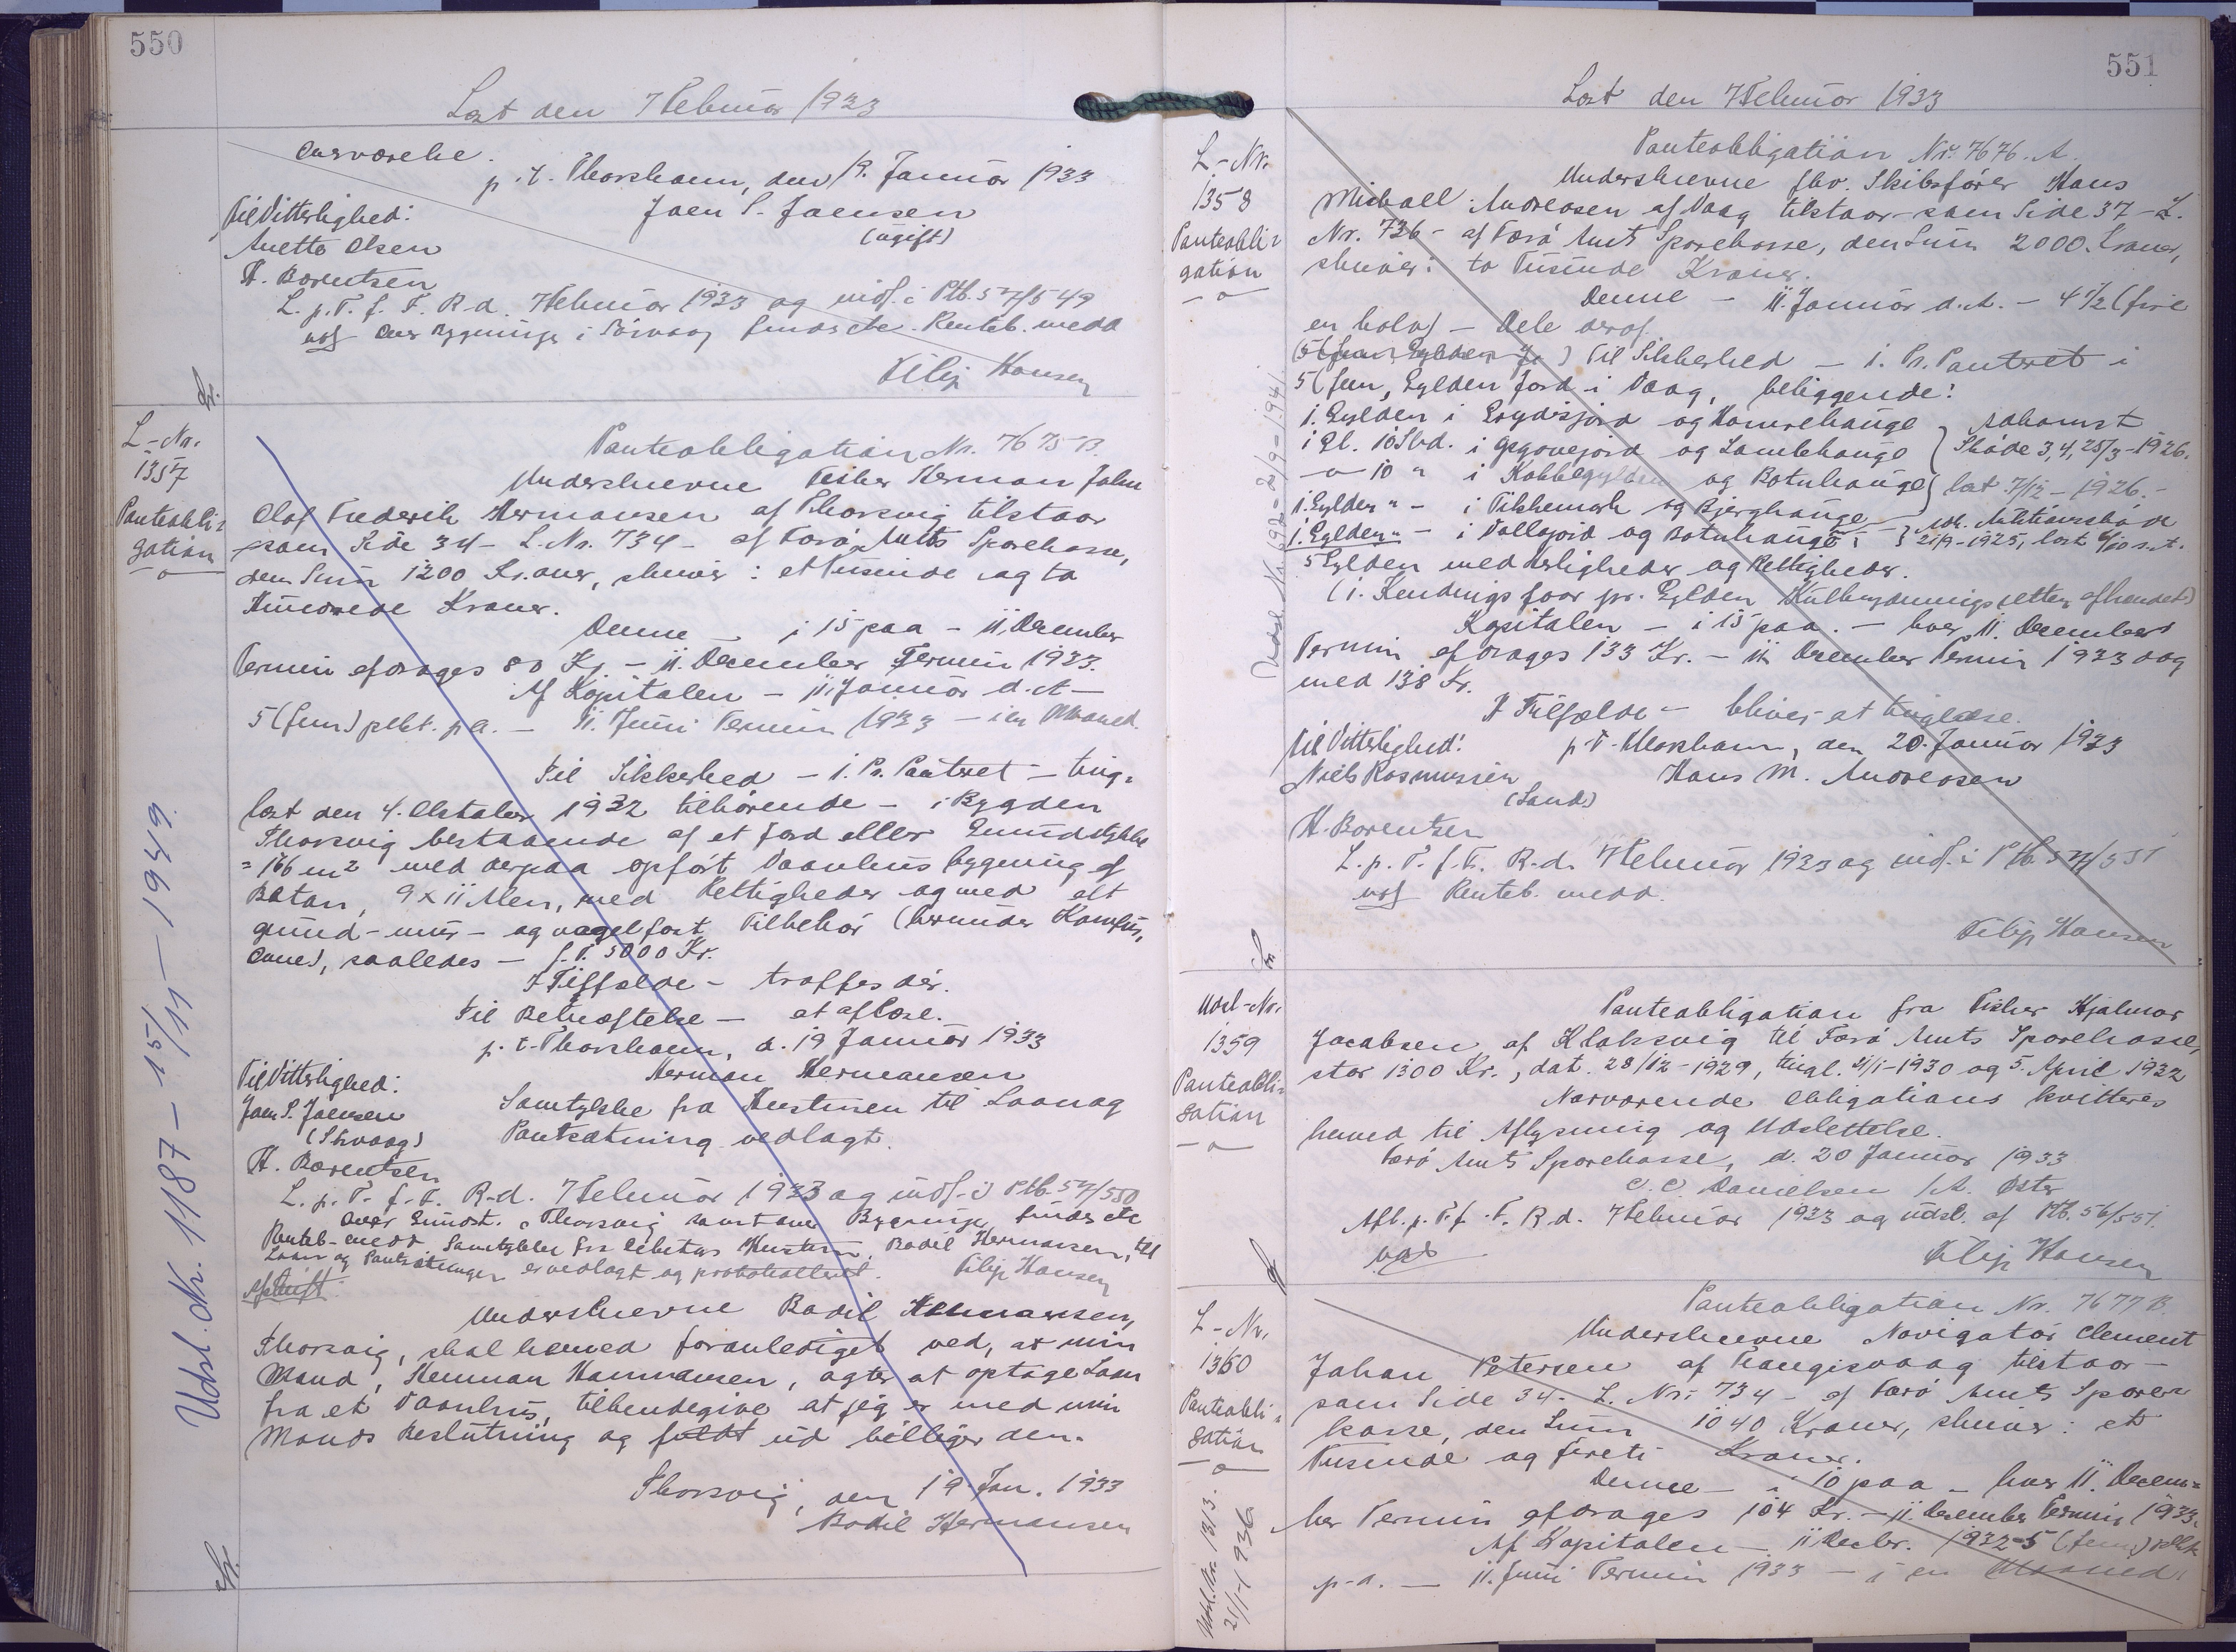 550
Læst den 7 Februar 1933
Overværelse.
p.t. Thorshavn, den 19. Januar 1933
Til Vitterlighed:
Joen S. Joensen
(ugift)
Anette Olsen
H. Børentsen
L. p. T. f. F. R-d. 7 Februar 1933 og indf. i Ptb. 57/549
over Bygninger i Sörvaag findes etc. Panteb. medd
Filip Hansen
L-Nr.
1357
Panteobli-
gation
Panteobligation Nr. 7675 B.
Underskrevne Fisker Herman John
Olaf Frederik Hermansen af Thorsvig tilstaar
som Side 34 - L. Nr. 734 - af Færø Amts Sparekasse,
den Sum 1200 Kroner, skriver: et Tusinde og to
Hundrede Kroner.
Denne - i 15 paa - 11. December
Termin afdrages 80 Kr. - 11. December Termin 1933.
Af Kapitalen - 11. Januar d. A -
5 (fem) pCt. p.a. - 11. Juni Termin 1933 - i en Maaned.
Til Sikkerhed - 1. Pr. Panteret - ting-
læst den 4. Oktober 1932 tilhørende - i Bygden
Thorsvig bestaaende af et Jord eller Grundstykke
= 166 m² med derpaa opført Vaanhus bygning af
Beton, 9 x 11 Alen, med Rettigheder og med alt
grund- mur- og nagelfast Tilbehør (herunder Komfur,
Ovne), saaledes - f. T. 5000 Kr.
I Tilfælde - træffes dér.
Til Bekræftelse - at aflæse.
p.t. Thorshavn, d. 19 Januar 1933
Til Vitterlighed:
Herman Hermansen
Joen S. Joensen
(Skvaag)
Samtykke fra Hustruen til Laan og
Pantsætning vedlagt.
H. Børentsen
L. p. T. f. F. R-d. 7 Februar 1933 og indf. i Ptb. 57/550
Over Grundst. i Thorsvig samt over Bygninger findes etc
Panteb. medd Samtykke fra debitors Hustru, Bodil Hermansen, til
Laan og Pantsætningen er vedlagt og protokolleret. Filip Hansen
Afskrift.
Underskrevne Bodil Hermansen,
Thorsvig, skal herved foranlediget ved, at min
Mand, Herman Hermansen, agter at optage Laan
fra et Vaanhus, tilkendegive at jeg er med min
Mands Beslutning og fuldt ud billiger den.
Thorsvig, den 19 Jan. 1933
Bodil Hermansen
Udsl. Nr. 1187 - 15/11 - 1949.
551
Læst den 7 Februar 1933
L-Nr.
1358
Panteobli-
gation
Panteobligation Nr. 7676. A.
Underskrevne fhv. Skibsfører Hans
Michael Andreasen af Vaag tilstaar - som Side 37 - L.
Nr. 736 - af Færø Amts Sparekasse, den Sum 2000 Kroner,
skriver: to Tusinde Kroner.
Denne - 11. Januar d. A. - 4 1/2 (fire
en halv) - Dele deraf.
Til Sikkerhed - 1. Pr. Panteret i
5 (fem) Gylden Jord i Vaag, beliggende:
1. Gylden i Erydsjord og Homrehauge
i Gl. 10 Skd. i Gegouejord og Lambehauge
- 10 " i Kobbegylden og Botnhauge
1. Gylden " - i Tikhemark og Bjerghauge
1. Gylden " - i Vallajord og Botnhauge
Adkomst
Skøde 3, 4, 25/3 - 1926.
læst 7/12 - 1926. -
Adk. Auktionsskøde
21/9 - 1925, læst 6/10 s. A.
5 Gylden med Herligheder og Rettigheder.
(1. Kendings foor pr. Gylden Kulbrydningsretten afhændet)
Kapitalen - i 15 paa. - hver 11. December
Termin afdrages 133 Kr. - 11. December Termin 1933 dog
med 138 Kr.
I Tilfælde - bliver at tinglæse.
Til Vitterlighed:
p.t. Thorshavn, den 20. Januar 1933
Niels Rasmussen
(Sand)
Hans M. Andreasen
H. Børentsen
L. p. T. f. F. R-d. 7 Februar 1933 og indf. i Ptb. 57/551
Panteb. medd.
Filip Hansen
Udsl. Nr. 692 - 2/9 - 1941
Udsl-Nr.
1359
Panteobli-
gation
Panteobligation fra Fisker Hjalmar
Jacobsen af Klaksvig til Færø Amts Sparekasse,
stor 1300 Kr., dat. 28/12 - 1929, tingl. 21/1 - 1930 og 5. April 1932
Nærværende Obligations kvitteres
herved til Aflysning og Udslettelse.
Færø Amts Sparekasse, d. 20 Januar 1933
C. C. Danielsen / A. Øster
Afl. p. T. f. F. R-d. 7 Februar 1933 og udsl. af Ptb. 56/551.
Filip Hansen
L-Nr.
1360
Panteobli-
gation
Panteobligation Nr. 7677 B.
Underskrevne Navigatør Clement
Johan Petersen af Trangisvaag tilstaar -
som Side 34 - L. Nr. 734 - af Færø Amts Spare-
kasse, den Sum 1040 Kroner, skriver: et
Tusinde og fireti Kroner.
Denne - i 10 paa - hver 11. Decem-
ber Termin afdrages 104 Kr. - 11. December Termin 1933.
Af Kapitalen - 11 Decbr. 1932 - 5 (fem) pCt.
p.a. - 11. Juni Termin 1933 - i en Maaned
Udsl. Nr. 1313.
21/1 - 1936